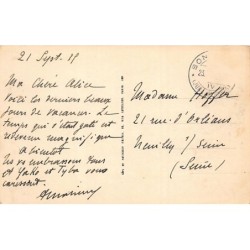 21 Sept. 18
Ma Chère Alice
Voici les derniers beaux
jours de vacances. Le
temps qui s'était gâté est
redevenu magnifique
A bientôt
Nous vous embrassons tous
et Yako et Tybo vous
caressent.
Madame Hoffer
21 rue d'Orléans
Neuilly s/ Seine
(Seine)